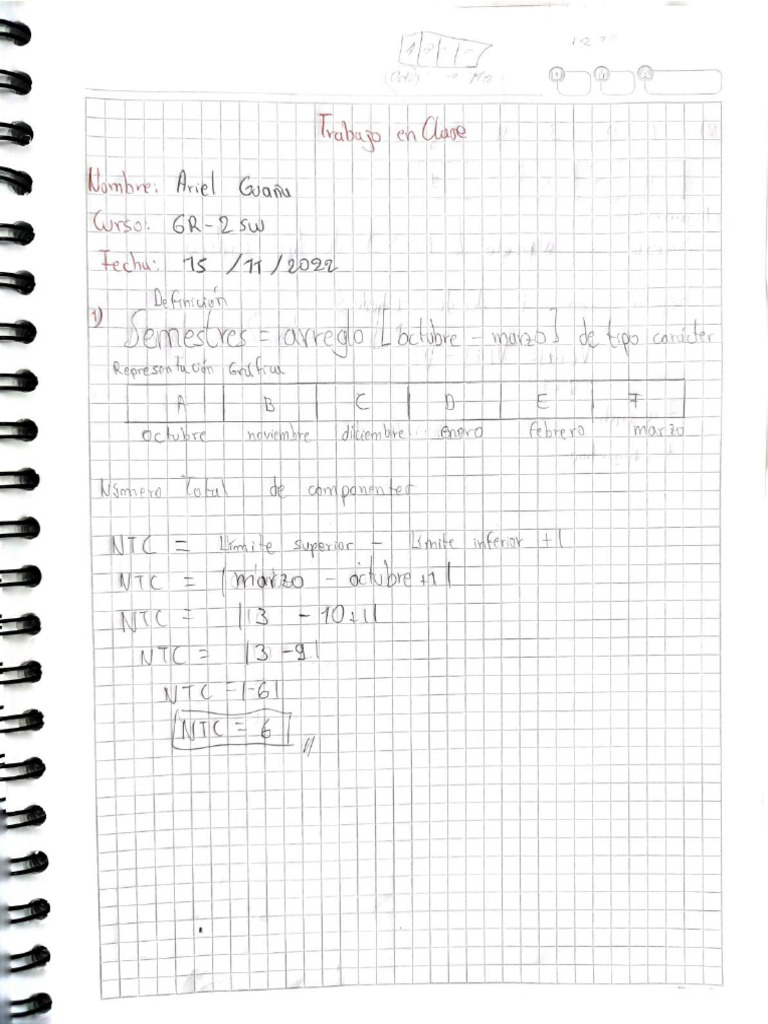 Trabajo en Clase
Nombre: Ariel Guaña
Curso: GR-2 SW
Fecha: 15 /11/2022
Definición
1) Semestres = arreglo [octubre - marzo] de tipo carácter
Representación Gráfica
A B C D E F
octubre noviembre diciembre enero febrero marzo
Número Total de componentes
NTC = Límite superior - Límite inferior +1
NTC = |marzo - octubre +1|
NTC = |3 - 10+1|
NTC = |3 -9|
NTC =|-6|
NTC = 6 //